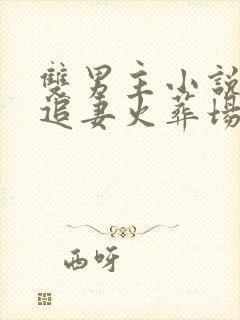 雙男主小說
追妻火葬場
西呀